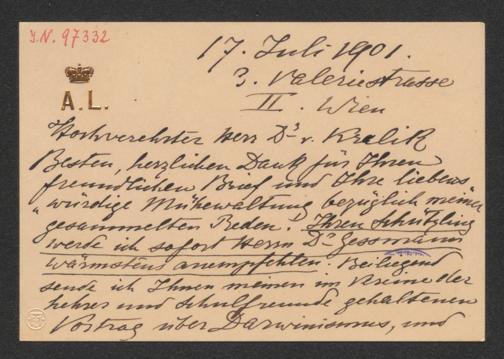 J.N. 97332
17. Juli 1901.
3. Valeriestrasse
II. Wien
A.L.
Hochverehrter Herr Dr v. Kralik
Besten, herzlichen Dank für Ihren
freundlichen Brief und Ihre liebens
würdige Mühewaltung bezüglich meiner
gesammelten Reden. Ihren Schützling
werde ich sofort Herrn Dr Gessmann
wärmstens anempfehlen. Beiliegend
sende ich Ihnen meinen im Vereine der
Lehrer und Schulfreunde gehaltenen
Vortrag über Darwinismus, und